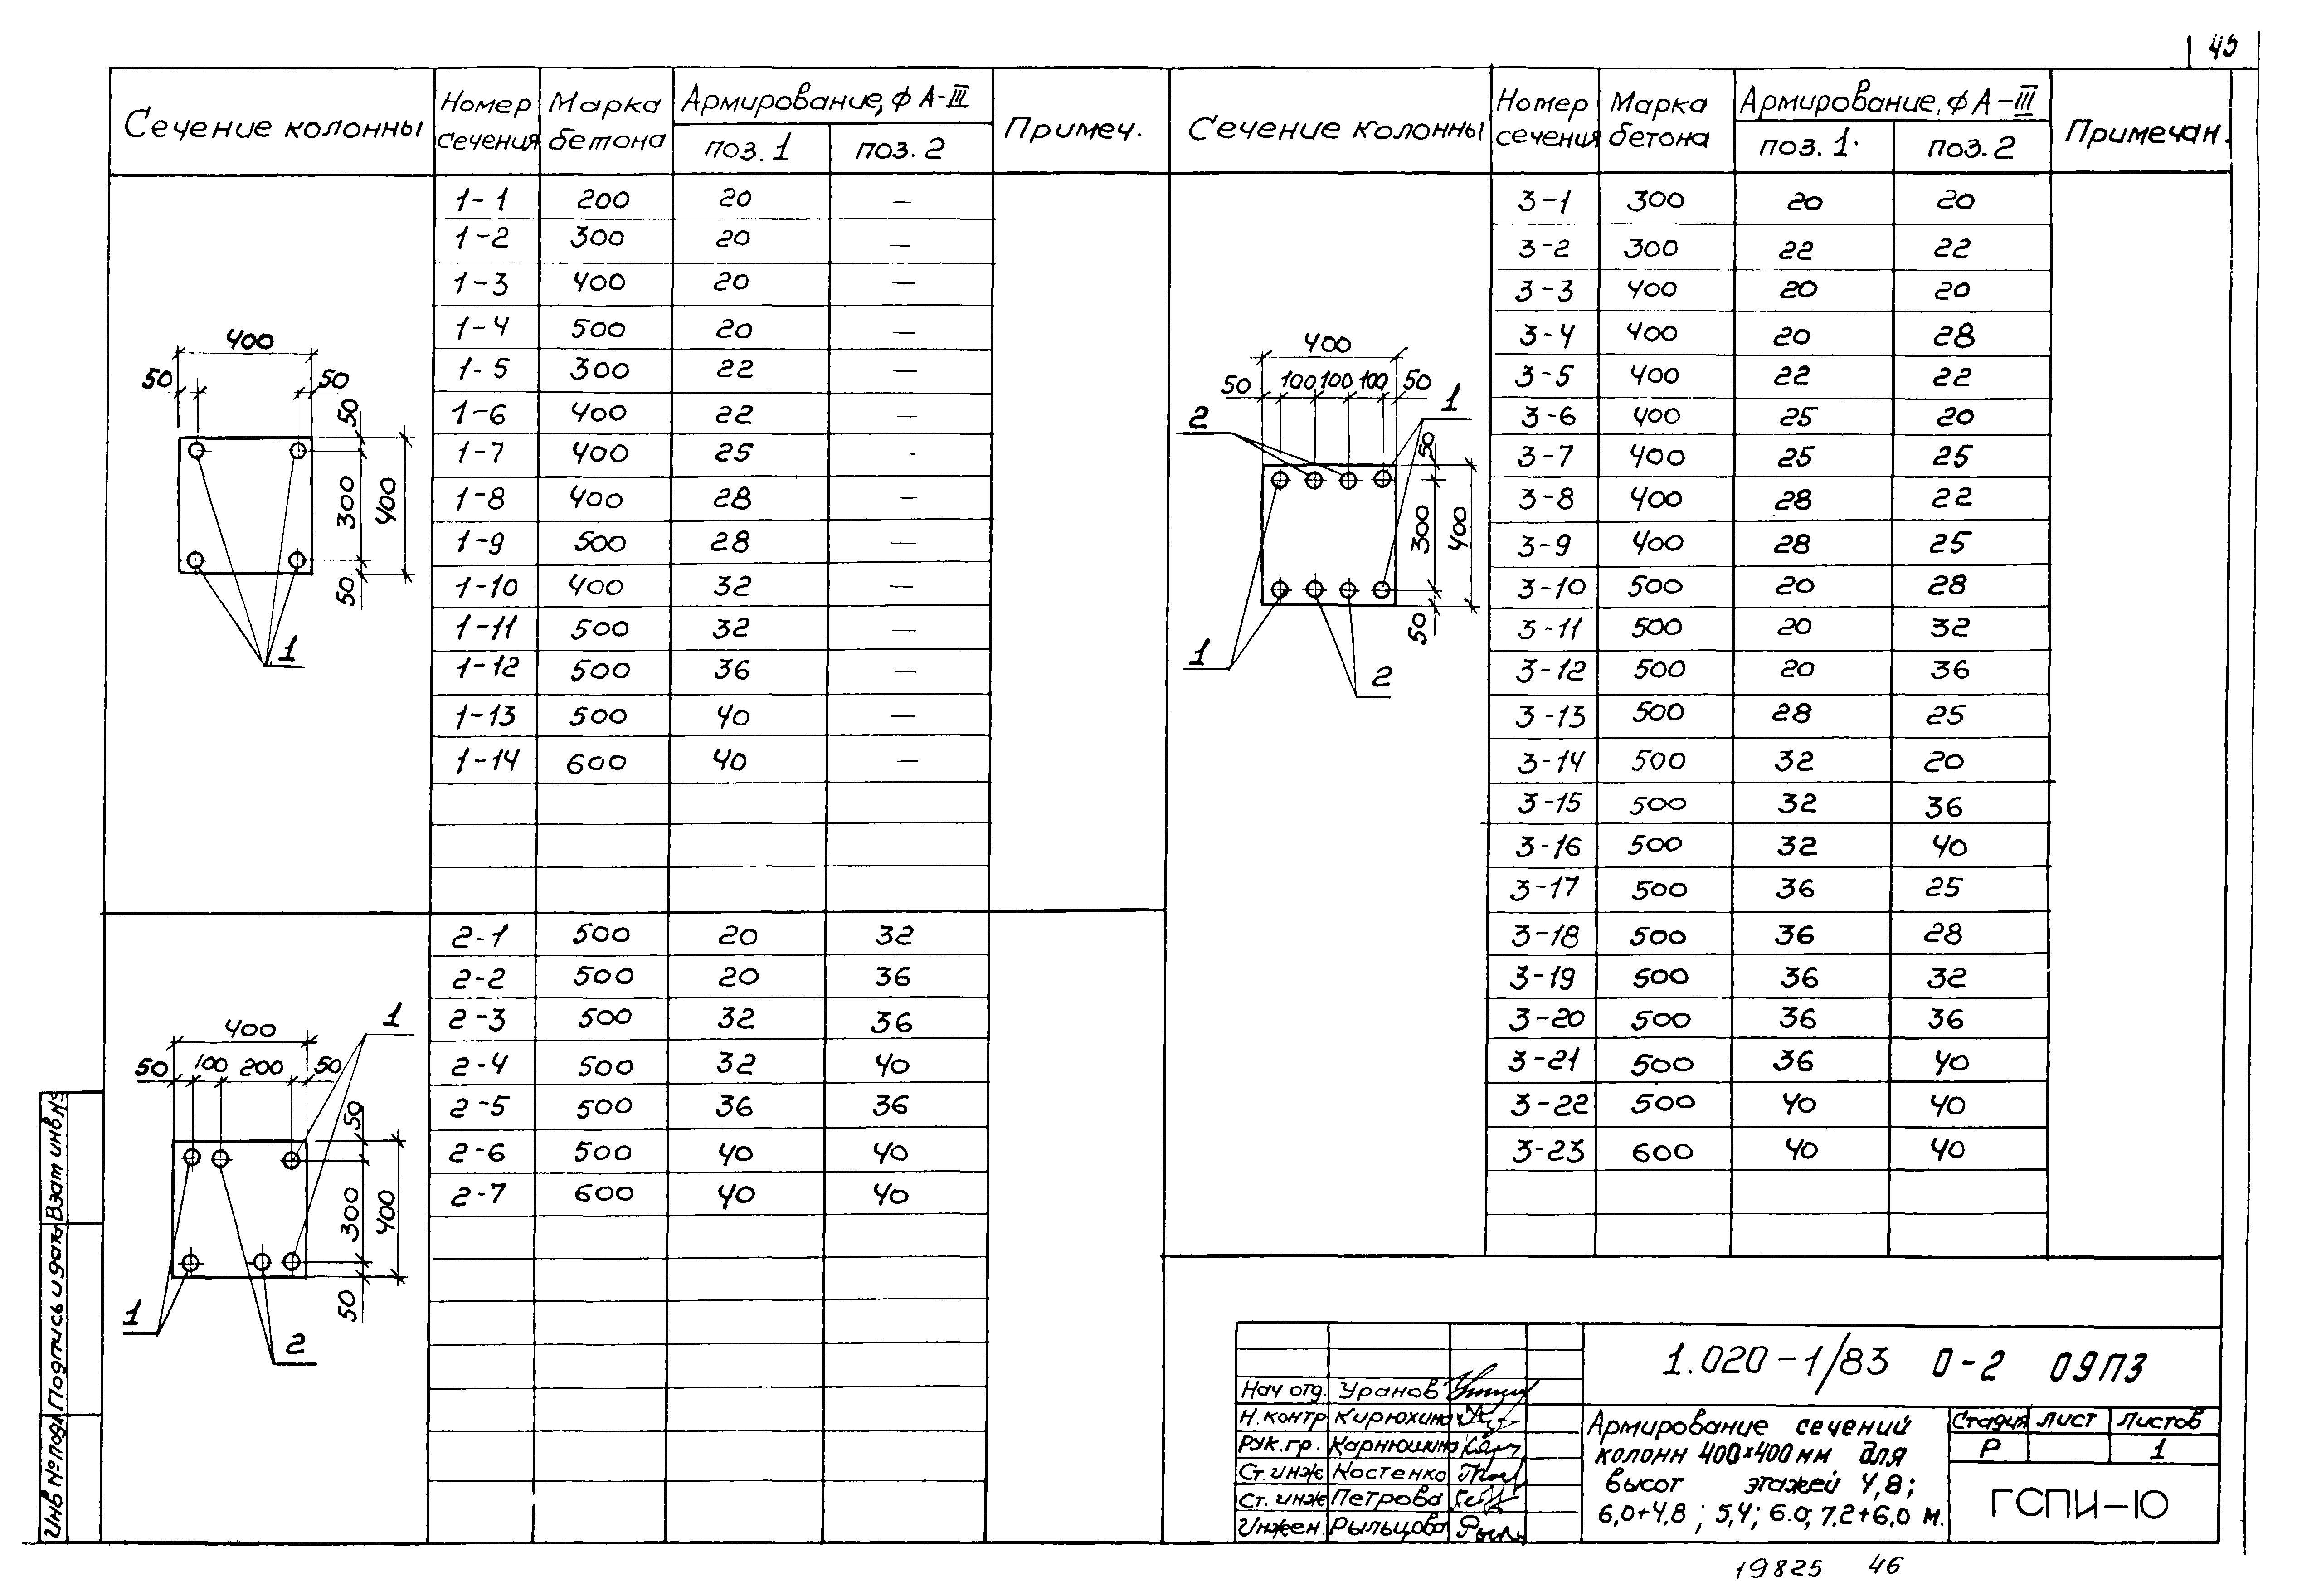 45
Сечение колонны | Номер сечения | Марка бетона | Армирование, ф А-III | Примеч.
поз. 1 | поз. 2
1-1 | 200 | 20 | —
1-2 | 300 | 20 | —
1-3 | 400 | 20 | —
1-4 | 500 | 20 | —
1-5 | 300 | 22 | —
1-6 | 400 | 22 | —
1-7 | 400 | 25 | -
1-8 | 400 | 28 | —
1-9 | 500 | 28 | —
1-10 | 400 | 32 | —
1-11 | 500 | 32 | —
1-12 | 500 | 36 | —
1-13 | 500 | 40 | —
1-14 | 600 | 40 | —
400
50 50
50
300
400
50
1
2-1 | 500 | 20 | 32
2-2 | 500 | 20 | 36
2-3 | 500 | 32 | 36
2-4 | 500 | 32 | 40
2-5 | 500 | 36 | 36
2-6 | 500 | 40 | 40
2-7 | 600 | 40 | 40
1
400
50 100 200 50
50
300
400
50
1
2
Сечение колонны | Номер сечения | Марка бетона | Армирование, ф А-III | Примечан.
поз. 1 | поз. 2
3-1 | 300 | 20 | 20
3-2 | 300 | 22 | 22
3-3 | 400 | 20 | 20
3-4 | 400 | 20 | 28
3-5 | 400 | 22 | 22
3-6 | 400 | 25 | 20
3-7 | 400 | 25 | 25
3-8 | 400 | 28 | 22
3-9 | 400 | 28 | 25
3-10 | 500 | 20 | 28
3-11 | 500 | 20 | 32
3-12 | 500 | 20 | 36
3-13 | 500 | 28 | 25
3-14 | 500 | 32 | 20
3-15 | 500 | 32 | 36
3-16 | 500 | 32 | 40
3-17 | 500 | 36 | 25
3-18 | 500 | 36 | 28
3-19 | 500 | 36 | 32
3-20 | 500 | 36 | 36
3-21 | 500 | 36 | 40
3-22 | 500 | 40 | 40
3-23 | 600 | 40 | 40
400
50 100 100 100 50
2 1
50
300
400
50
1
2
Взам инв.№
Подпись и дата
Инв № подл
1.020-1/83 0-2 09ПЗ
Нач отд. Уранов
Н.контр Кирюхина
Рук.гр. Карнюшина
Ст.инж Костенко
Ст. инж Петрова
Инжен. Рыльцова
Армирование сечений
колонн 400×400 мм для
высот этажей 4,8;
6,0+4,8; 5,4; 6.0; 7,2+6,0 м.
Стадия | лист | Листов
Р | | 1
ГСПИ-10
19825 46